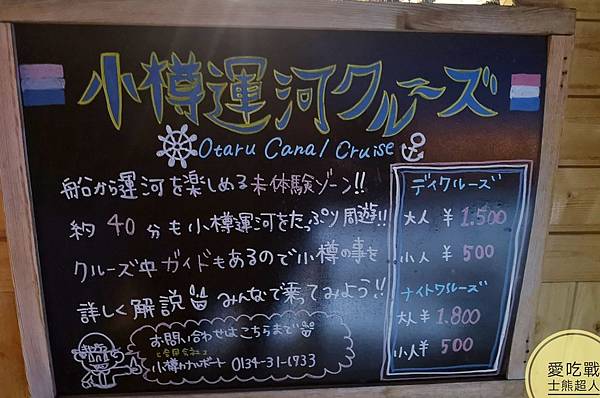 小樽運河クルーズ
Otaru Canal Cruise
船から運河を楽しめる未体験ゾーン!!
約40分も小樽運河をたっぷり周遊!!
クルーズ中ガイドもあるので小樽の事を
詳しく解説 みんなで乗ってみよう!!
お問い合わせはこちらまで
合同会社
小樽カナルボート 0134-31-1733
デイクルーズ
大人 ¥1.500
小人 ¥500
ナイトクルーズ
大人¥1.800
小人¥500
愛吃戰
士熊超人